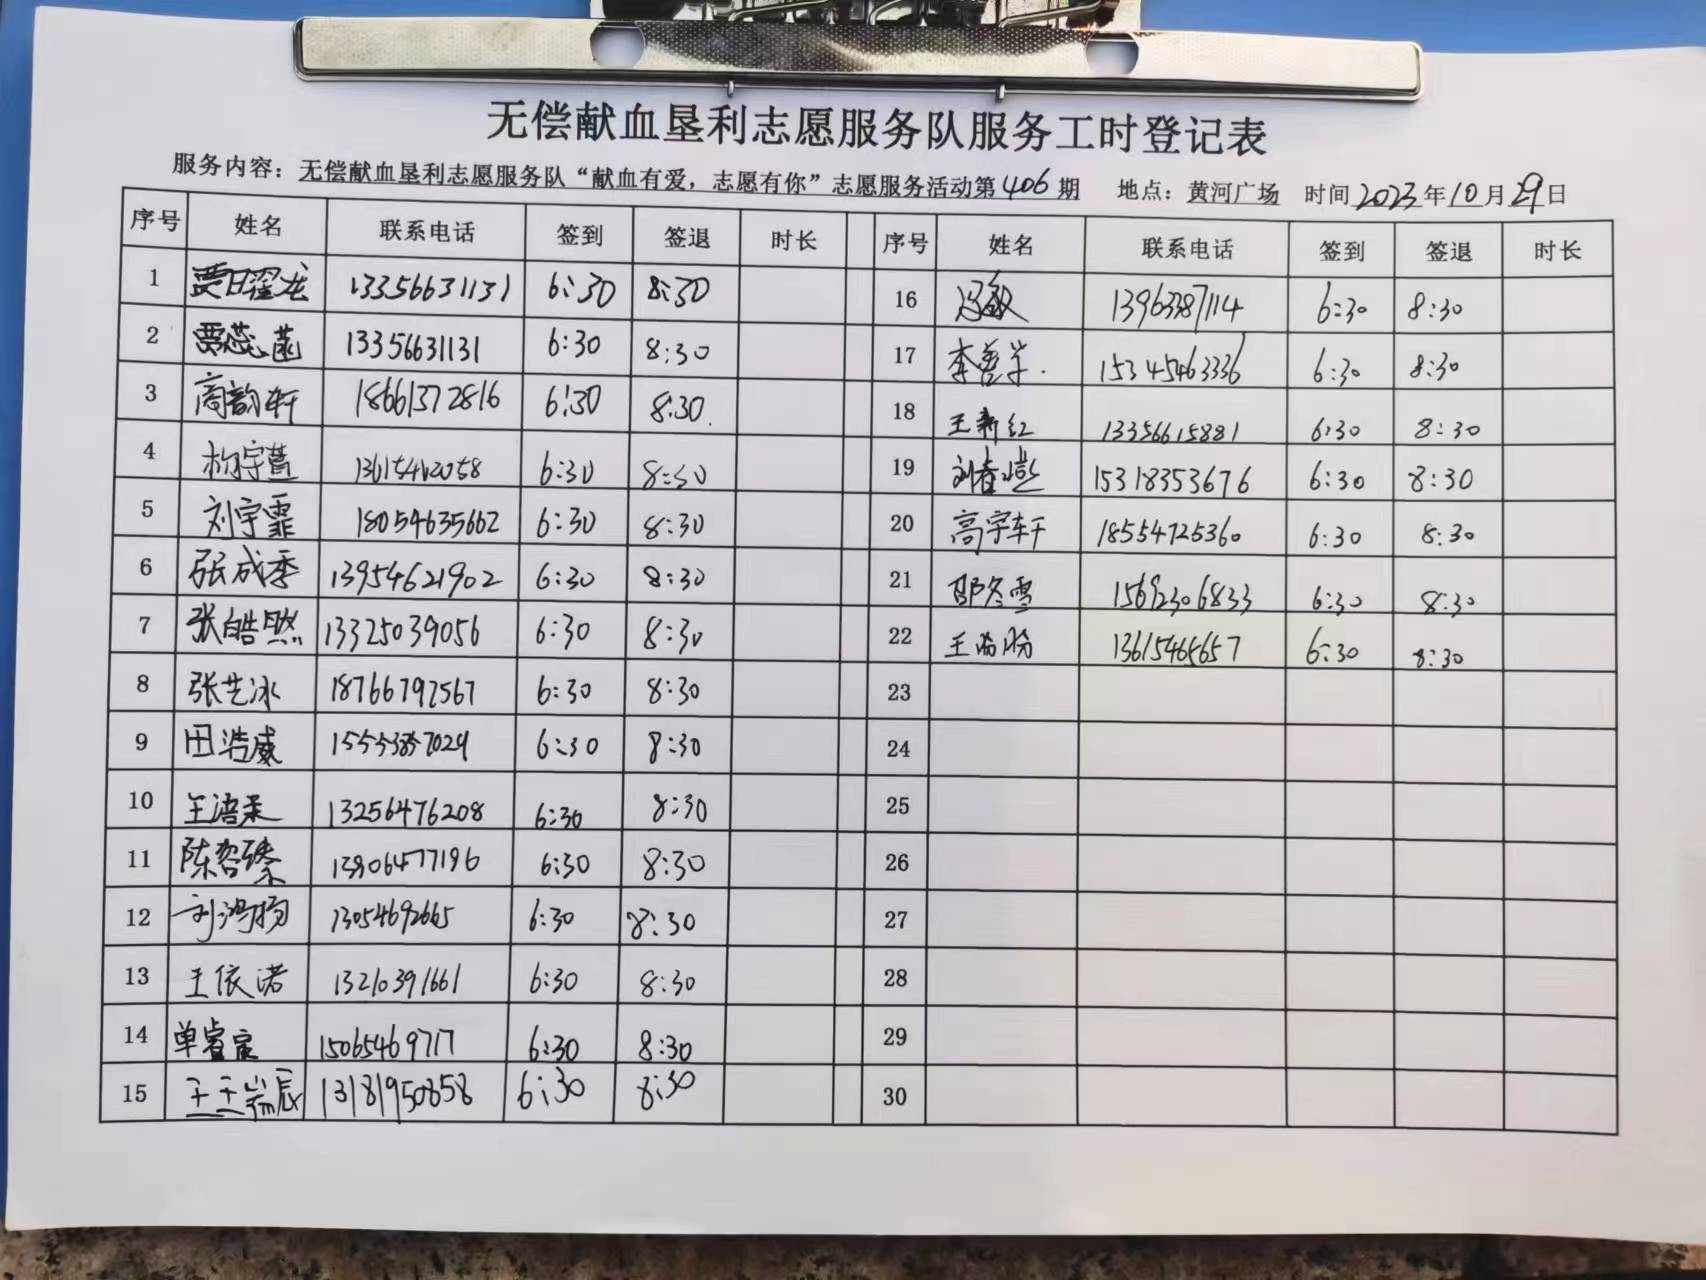 无偿献血垦利志愿服务队服务工时登记表
服务内容：无偿献血垦利志愿服务队“献血有爱，志愿有你”志愿服务活动第406期 地点：黄河广场 时间2023年10月29日
序号 姓名 联系电话 签到 签退 时长 序号 姓名 联系电话 签到 签退 时长
1 贾日翟龙 13356631131 6:30 8:30
2 贾蕊菡 13356631131 6:30 8:30
3 商韵轩 18661372816 6:30 8:30.
4 杨宇萱 6:30 8:30
5 刘宇霏 18054635662 6:30 8:30
6 张成季 13954621902 6:30 8:30
7 张皓煦 13325039056 6:30 8:30
8 张艺冰 18766792567 6:30 8:30
9 田浩威 6:30 8:30
10 13256476208 6:30 8:30
11 13906477196 6:30 8:30
12 刘鸿扬 13054692665 6:30 8:30
13 王依诺 13210391661 6:30 8:30
14 单睿宸 15065469717 6:30 8:30
15 13181950858 6:30 8:30
16 冯敏 13963387114 6:30 8:30
17 李善学. 15345463336 6:30 8:30
18 王新红 13356615881 6:30 8:30
19 15318353676 6:30 8:30
20 高宇轩 18554725360 6:30 8:30
21 邵冬雪 15692306833 6:30 8:30
22 13615465657 6:30 8:30
23
24
25
26
27
28
29
30